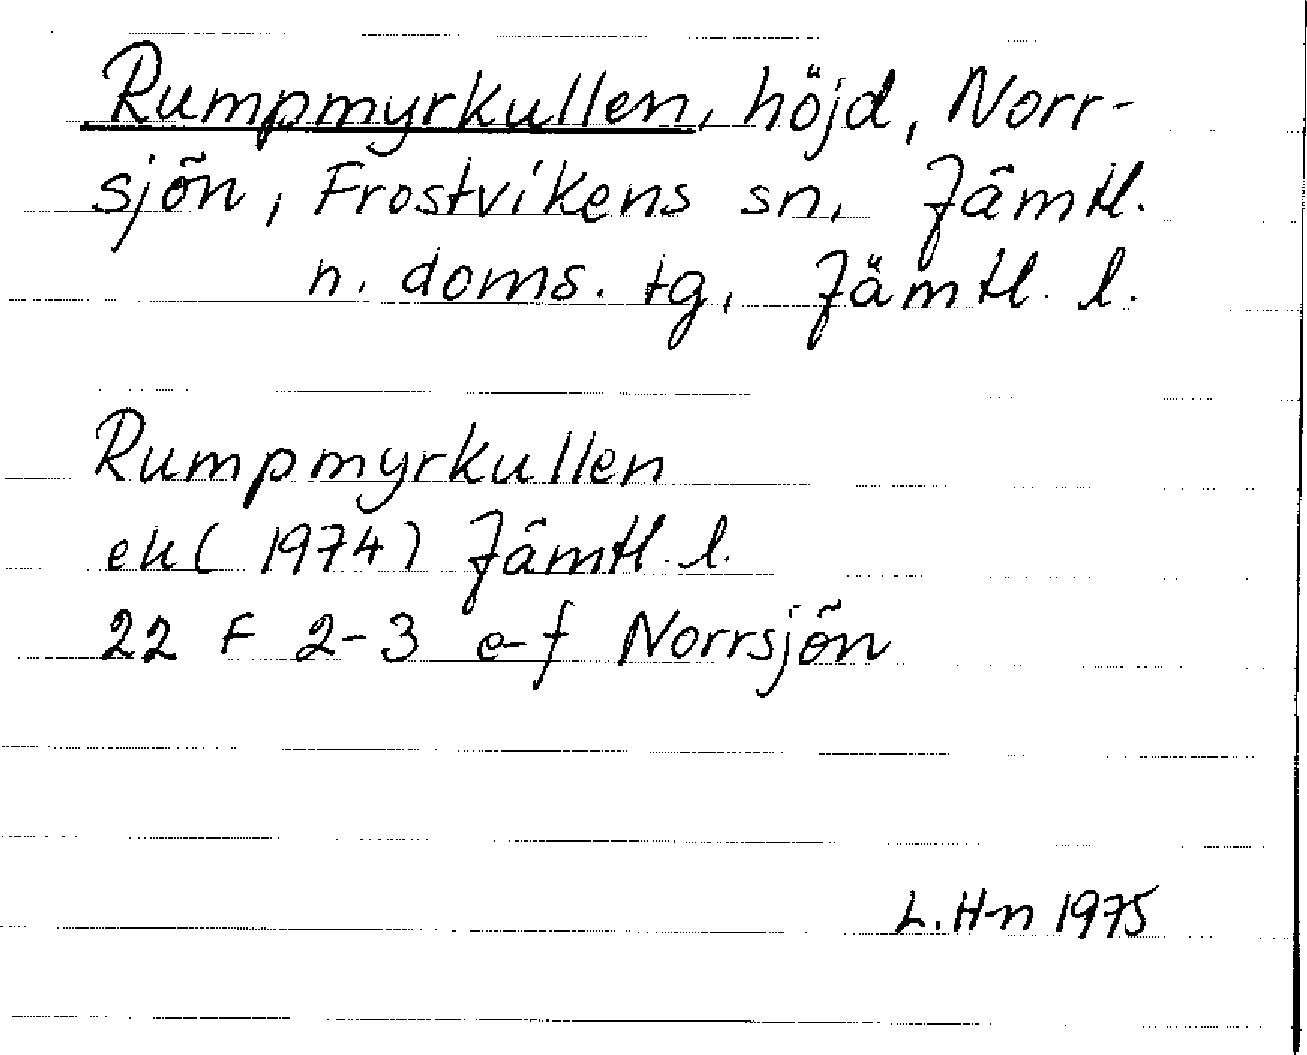 Rumpmyrkullen, höjd, Norr-
sjön, Frostvikens sn, Jämtl.
n. doms. tg, Jämtl. l.
Rumpmyrkullen
ek (1974) Jämtl. l.
22 F 2-3 e-f Norrsjön
L. H-n 1975